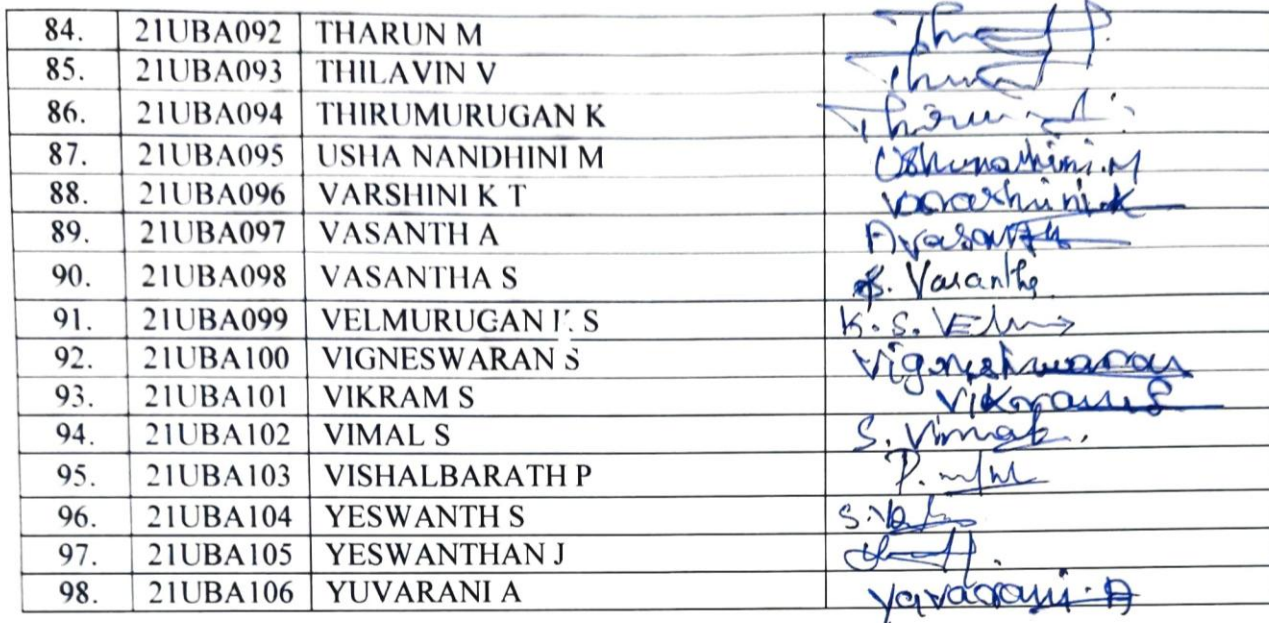 84. 21UBA092 THARUN M
85. 21UBA093 THILAVIN V
86. 21UBA094 THIRUMURUGAN K
87. 21UBA095 USHA NANDHINI M
88. 21UBA096 VARSHINI K T varshini.K
89. 21UBA097 VASANTH A A vasanth
90. 21UBA098 VASANTHA S S. Vasantha
91. 21UBA099 VELMURUGAN K S K.S.
92. 21UBA100 VIGNESWARAN S Vigneshwaran
93. 21UBA101 VIKRAM S Vikram S
94. 21UBA102 VIMAL S S. Vimal.
95. 21UBA103 VISHALBARATH P P.
96. 21UBA104 YESWANTH S S.
97. 21UBA105 YESWANTHAN J
98. 21UBA106 YUVARANI A Yuvarani. A